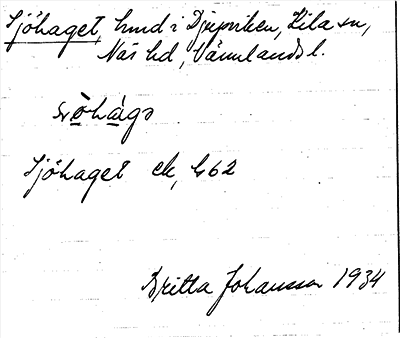 Sjöhaget, hmd i Djupviken, Kila sn,
Näs hd, Värmlands l.
Sjöhaget ek, G62
Britta Johansson 1934